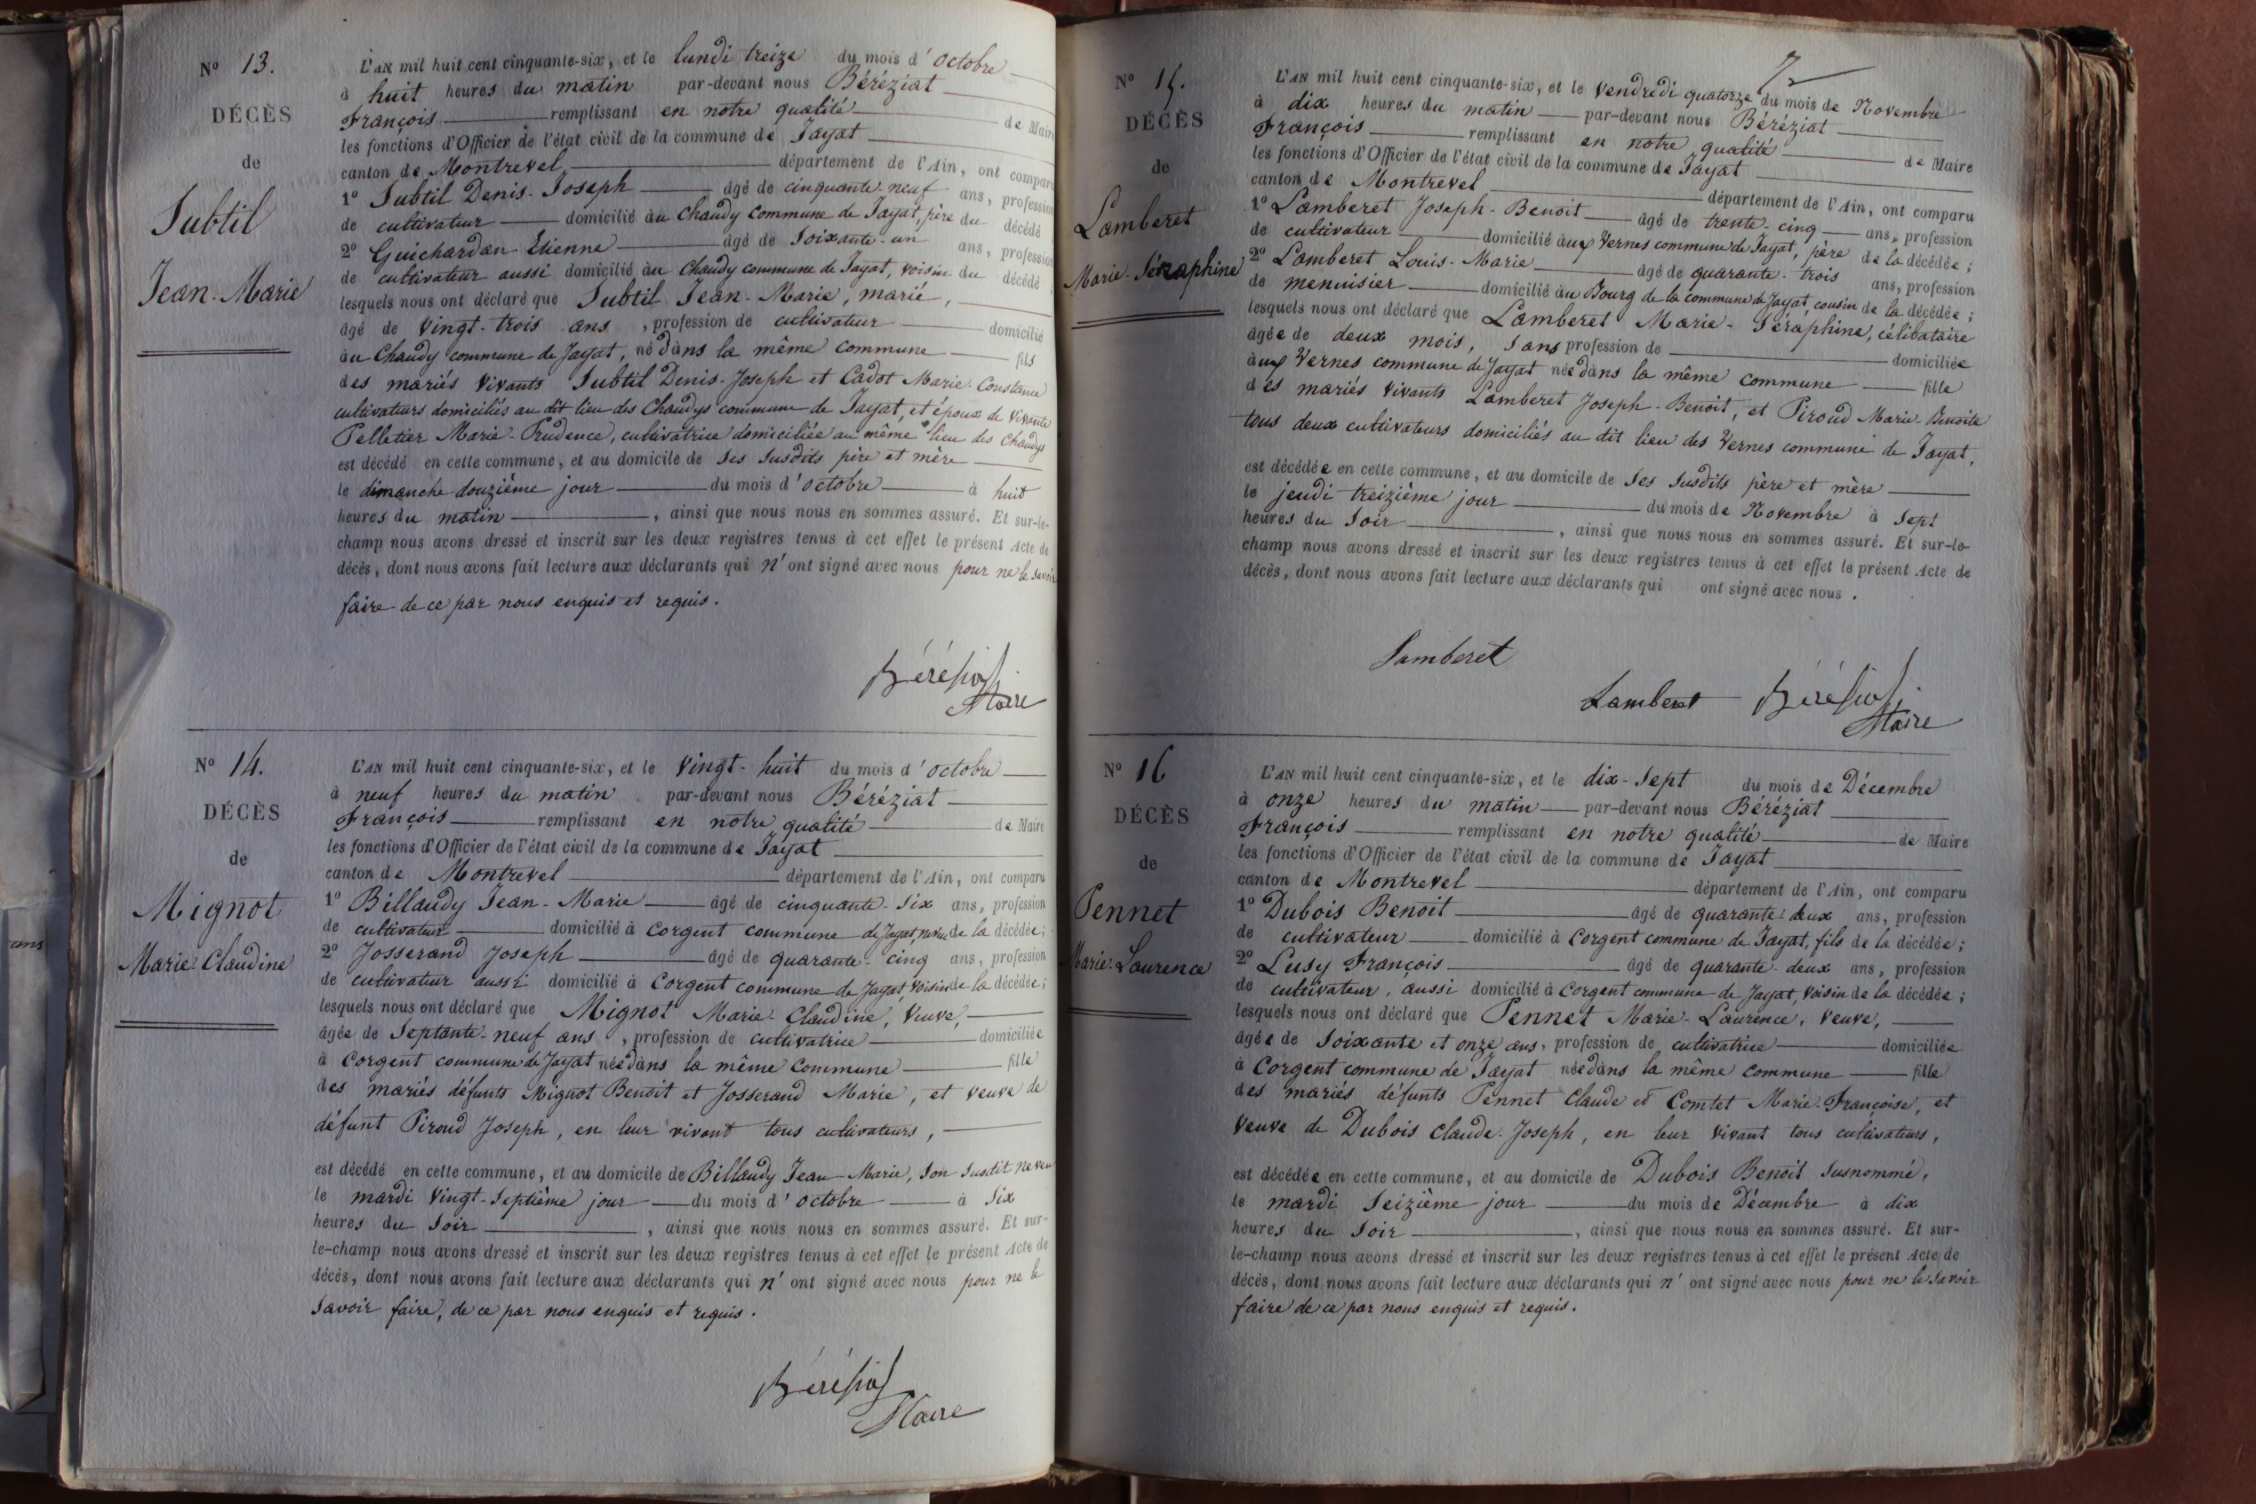 Nº 13.
DÉCÈS
de
Subtil
Jean-Marie
L'AN mil huit cent cinquante-six, et le lundi treize du mois d'octobre
à huit heures du matin par-devant nous Béréziat
François remplissant en notre qualité de Maire
les fonctions d'Officier de l'état civil de la commune de Jayat
canton de Montrevel département de l'Ain, ont comparu
1º Subtil Denis-Joseph âgé de cinquante-neuf ans, profession
de cultivateur domicilié au Chaudy commune de Jayat, père du décédé
2º Guichardan Etienne âgé de soixante-un ans, profession
de cultivateur aussi domicilié au Chaudy commune de Jayat, voisin du décédé
lesquels nous ont déclaré que Subtil Jean-Marie, marié,
âgé de vingt-trois ans, profession de cultivateur domicilié
au Chaudy commune de Jayat, né dans la même commune fils
des mariés vivants Subtil Denis-Joseph et Cadot Marie-Constance
cultivateurs domiciliés au dit lieu des Chaudys commune de Jayat, et époux de vivante
Pelletier Marie-Prudence, cultivatrice domiciliée au même lieu des Chaudys
est décédé en cette commune, et au domicile de ses susdits père et mère
le dimanche douzième jour du mois d'octobre à huit
heures du matin, ainsi que nous nous en sommes assuré. Et sur-le-
champ nous avons dressé et inscrit sur les deux registres tenus à cet effet le présent Acte de
décès, dont nous avons fait lecture aux déclarants qui n'ont signé avec nous pour ne le savoir
faire de ce par nous enquis et requis.
Béréziat
Maire
Nº 14.
DÉCÈS
de
Mignot
Marie-Claudine
L'AN mil huit cent cinquante-six, et le vingt-huit du mois d'octobre
à neuf heures du matin par-devant nous Béréziat
François remplissant en notre qualité de Maire
les fonctions d'Officier de l'état civil de la commune de Jayat
canton de Montrevel département de l'Ain, ont comparu
1º Billaudy Jean-Marie âgé de cinquante-six ans, profession
de cultivateur domicilié à Corgent commune de Jayat, neveu de la décédée;
2º Josserand Joseph âgé de quarante-cinq ans, profession
de cultivateur aussi domicilié à Corgent commune de Jayat, voisin de la décédée;
lesquels nous ont déclaré que Mignot Marie-Claudine, veuve,
âgée de septante-neuf ans, profession de cultivatrice domiciliée
à Corgent commune de Jayat née dans la même commune fille
des mariés défunts Mignot Benoit et Josserand Marie, et veuve de
défunt Piroud Joseph, en leur vivant tous cultivateurs,
est décédé en cette commune, et au domicile de Billaudy Jean-Marie, son susdit neveu
le mardi vingt-septième jour du mois d'octobre à six
heures du soir, ainsi que nous nous en sommes assuré. Et sur-
le-champ nous avons dressé et inscrit sur les deux registres tenus à cet effet le présent Acte de
décès, dont nous avons fait lecture aux déclarants qui n'ont signé avec nous pour ne le
savoir faire, de ce par nous enquis et requis.
Béréziat
Maire
Nº 15.
DÉCÈS
de
Lamberet
Marie-Séraphine
L'AN mil huit cent cinquante-six, et le vendredi quatorze du mois de Novembre
à dix heures du matin par-devant nous Béréziat
François remplissant en notre qualité de Maire
les fonctions d'Officier de l'état civil de la commune de Jayat
canton de Montrevel département de l'Ain, ont comparu
1º Lamberet Joseph-Benoit âgé de trente-cinq ans, profession
de cultivateur domicilié aux Vernes commune de Jayat, père de la décédée;
2º Lamberet Louis-Marie âgé de quarante-trois ans, profession
de menuisier domicilié au Bourg de la commune de Jayat, cousin de la décédée;
lesquels nous ont déclaré que Lamberet Marie-Séraphine, célibataire
âgée de deux mois, sans profession de domiciliée
aux Vernes commune de Jayat née dans la même commune fille
des mariés vivants Lamberet Joseph-Benoit, et Piroud Marie-Benoite
tous deux cultivateurs domiciliés au dit lieu des Vernes commune de Jayat,
est décédée en cette commune, et au domicile de ses susdits père et mère
le jeudi treizième jour du mois de Novembre à sept
heures du soir, ainsi que nous nous en sommes assuré. Et sur-le-
champ nous avons dressé et inscrit sur les deux registres tenus à cet effet le présent Acte de
décès, dont nous avons fait lecture aux déclarants qui ont signé avec nous.
Lamberet
Lamberet Béréziat
Maire
Nº 16
DÉCÈS
de
Pennet
Marie-Laurence
L'AN mil huit cent cinquante-six, et le dix-sept du mois de Décembre
à onze heures du matin par-devant nous Béréziat
François remplissant en notre qualité de Maire
les fonctions d'Officier de l'état civil de la commune de Jayat
canton de Montrevel département de l'Ain, ont comparu
1º Dubois Benoit âgé de quarante-deux ans, profession
de cultivateur domicilié à Corgent commune de Jayat, fils de la décédée;
2º Lusy François âgé de quarante-deux ans, profession
de cultivateur, aussi domicilié à Corgent commune de Jayat, voisin de la décédée;
lesquels nous ont déclaré que Pennet Marie-Laurence, veuve,
âgée de soixante et onze ans, profession de cultivatrice domiciliée
à Corgent commune de Jayat née dans la même commune fille
des mariés défunts Pennet Claude et Comtet Marie-Françoise, et
veuve de Dubois Claude-Joseph, en leur vivant tous cultivateurs,
est décédée en cette commune, et au domicile de Dubois Benoit susnommé,
le mardi seizième jour du mois de Décembre à dix
heures du soir, ainsi que nous nous en sommes assuré. Et sur-
le-champ nous avons dressé et inscrit sur les deux registres tenus à cet effet le présent Acte de
décès, dont nous avons fait lecture aux déclarants qui n'ont signé avec nous pour ne le savoir
faire de ce par nous enquis et requis.